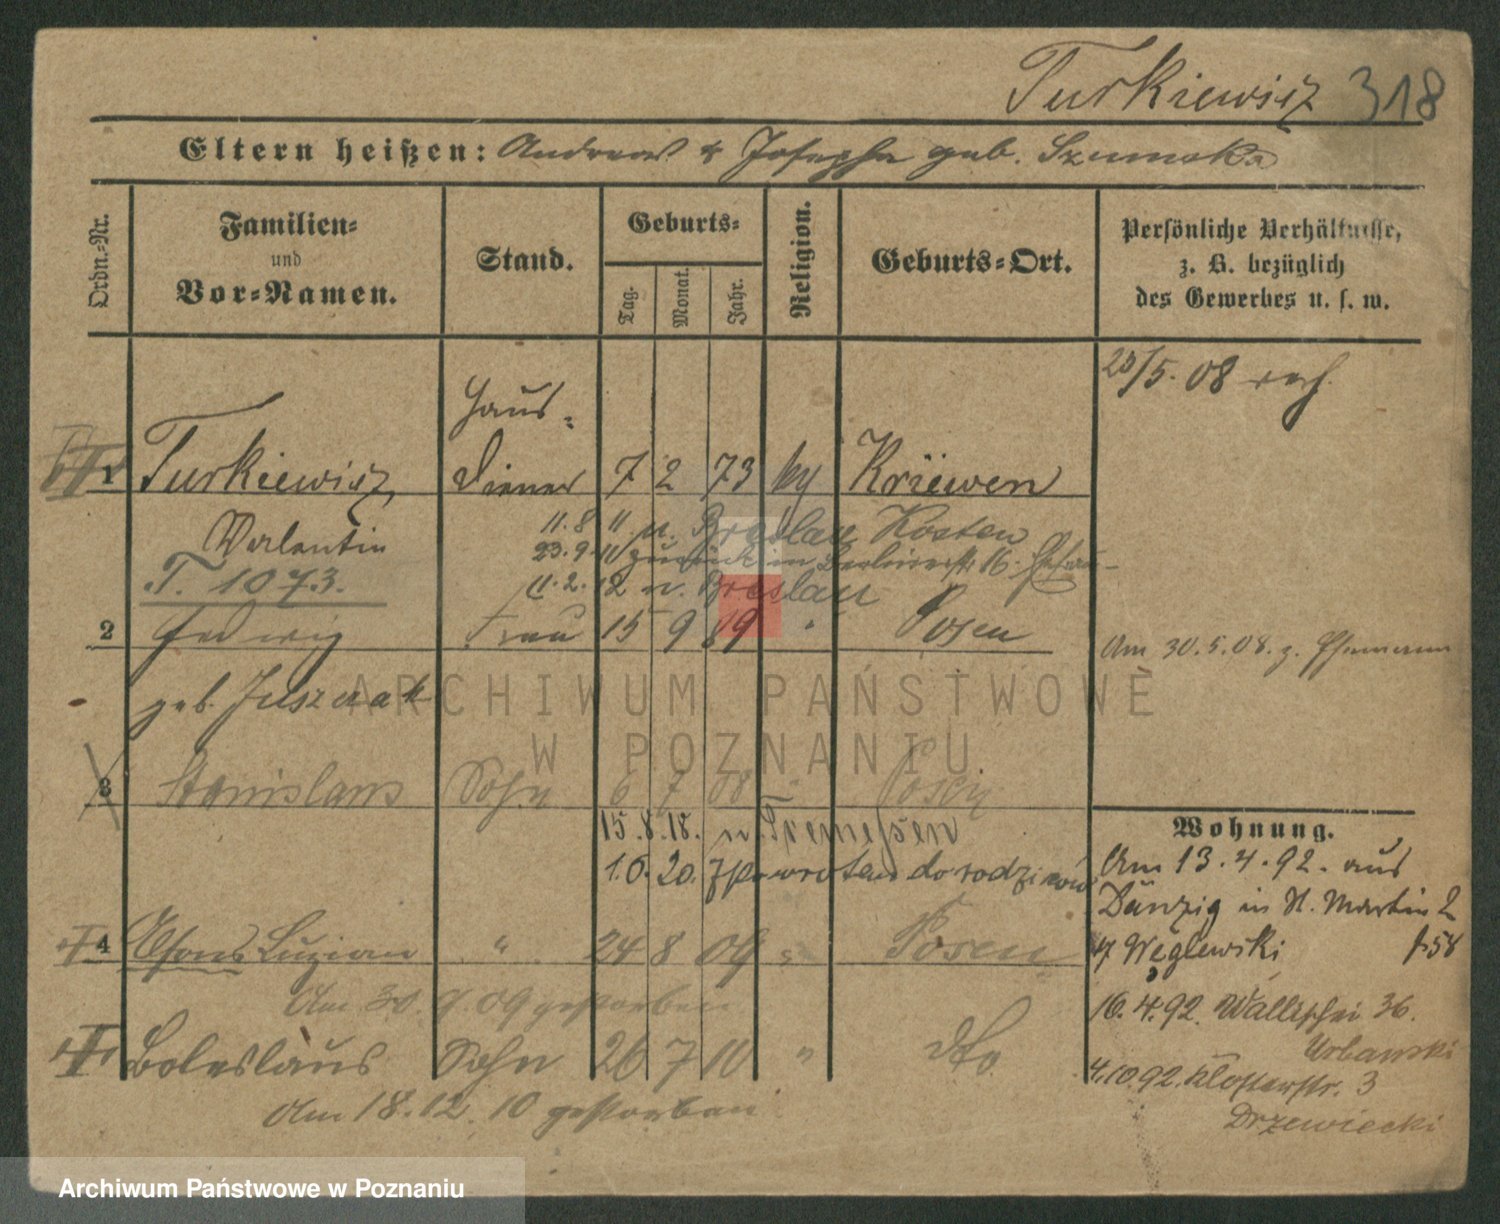 Turkiewicz 318
Eltern heißen: Andreas & Josepha geb. Szumska
Ordn.-Nr.
Familien- und Vor-Namen.
Stand.
Geburts-
Tag.
Monat.
Jahr.
Religion.
Geburts-Ort.
Persönliche Verhältnisse,
z. B. bezüglich
des Gewerbes u. s. w.
25/5. 08
Haus-
1 Turkiewicz, Diener 7 2 73 Kriewen
Valentin 11.8 11 n. Breslau Kosten
23.9.11 zurück in Berlinerstr. 16
T. 1073. 11.2.12 n. Breslau
2 Hedwig Frau 15 9 89 " Posen
Am 30.5.08. z.
geb. Juszczak
3 Stanislaus Sohn 6 7 08 " Posen
15.8.18. n. Tremessen
1.6.20. z powrotem do rodziców
4 Alfons Luzian " 24 8 09 " Posen
Am 30. 9 09 gestorben
Boleslaus Sohn 26 7 10 " dto
Am 18.12.10 gestorben
Wohnung.
Am 13.4.92. aus
Danzig in St. Martin 2
Węglewski f. 58
16.4.92. Wallischei 36.
Urbanski
4.10.92. Klosterstr. 3
Drzewiecki
ARCHIWUM PAŃSTWOWE
W POZNANIU
Archiwum Państwowe w Poznaniu